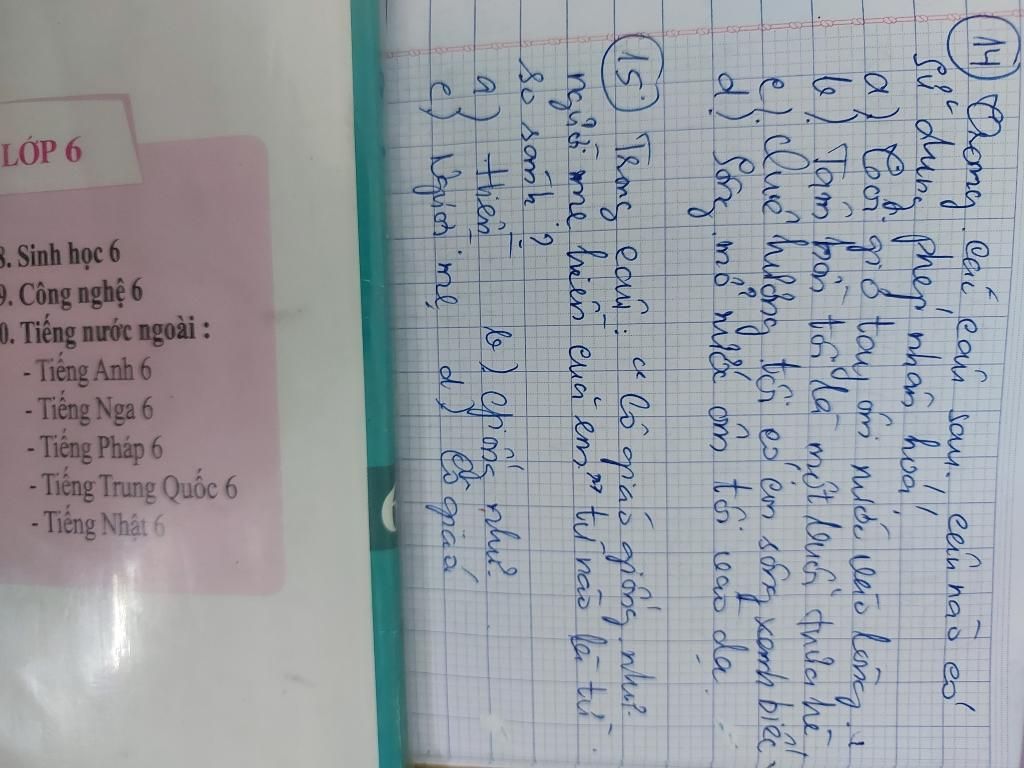 14 Trong các câu sau. câu nào có
sử dụng phép nhân hoá
a) Tôi giơ tay ôm nước vào lòng.
b) Tâm hồn tôi là một buổi trưa hè
c) Quê hương tôi có con sông xanh biếc
d) Sông mở nước ôm tôi vào dạ
15 Trong câu: "Cô giáo giống như
người mẹ hiền của em" từ nào là từ
so sánh?
a) Hiền b) Giống như
c) Người mẹ d) Cô giáo
LỚP 6
8. Sinh học 6
9. Công nghệ 6
0. Tiếng nước ngoài :
- Tiếng Anh 6
- Tiếng Nga 6
- Tiếng Pháp 6
- Tiếng Trung Quốc 6
- Tiếng Nhật 6